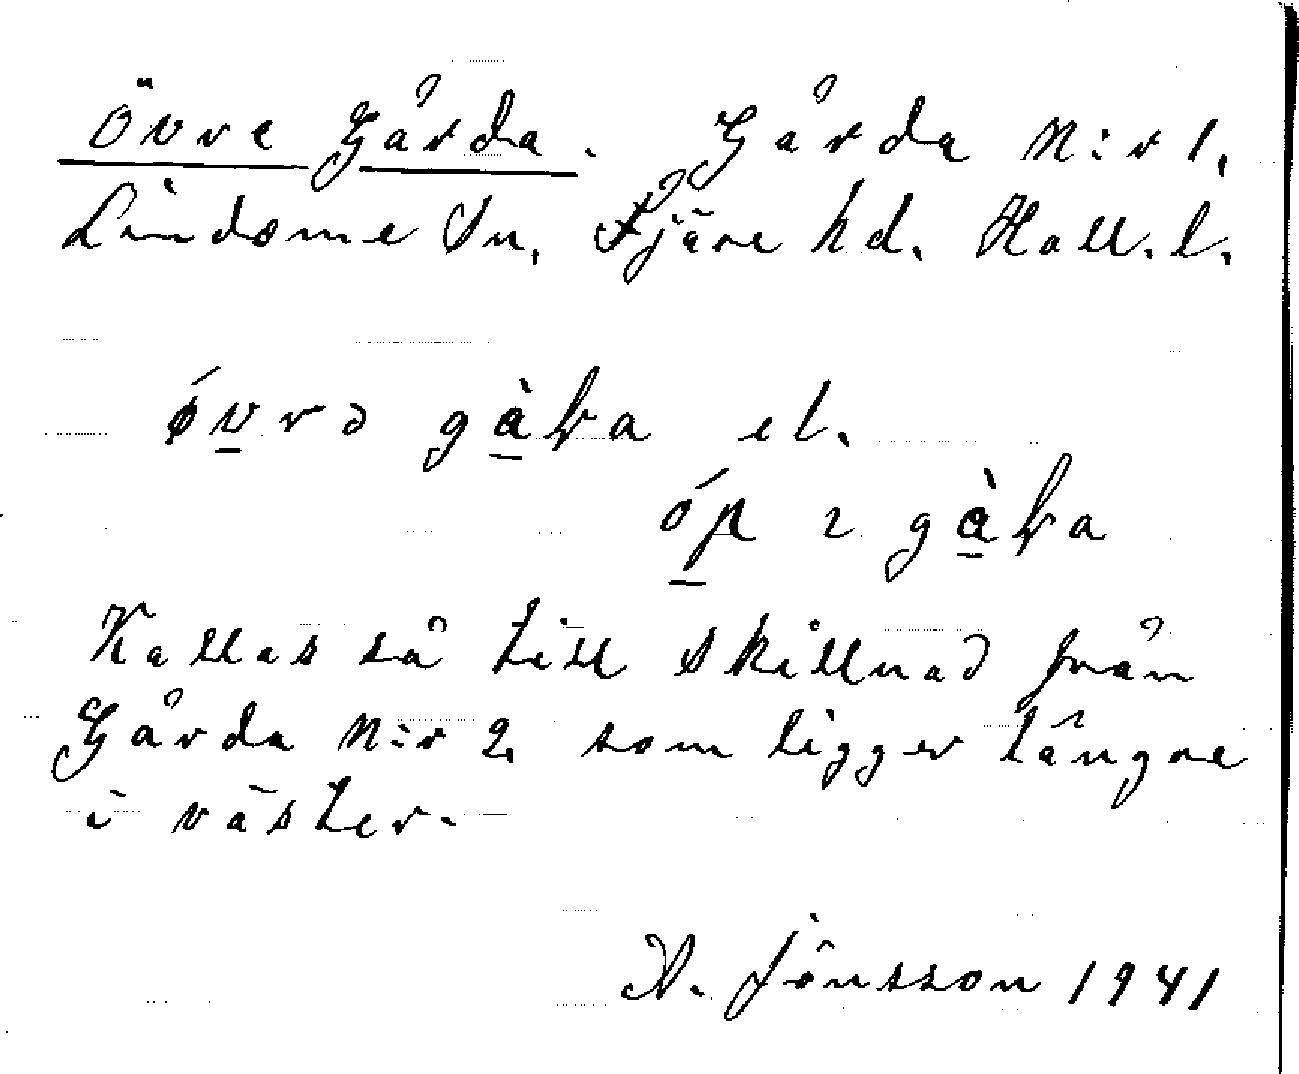 Övre Gårda. Gårda N:r 1.
Lindome Sn. Fjäre hd. Hall. l.
el.
Kallas så till skillnad från
Gårda N:r 2, som ligger längre
i väster.
Jönsson 1941